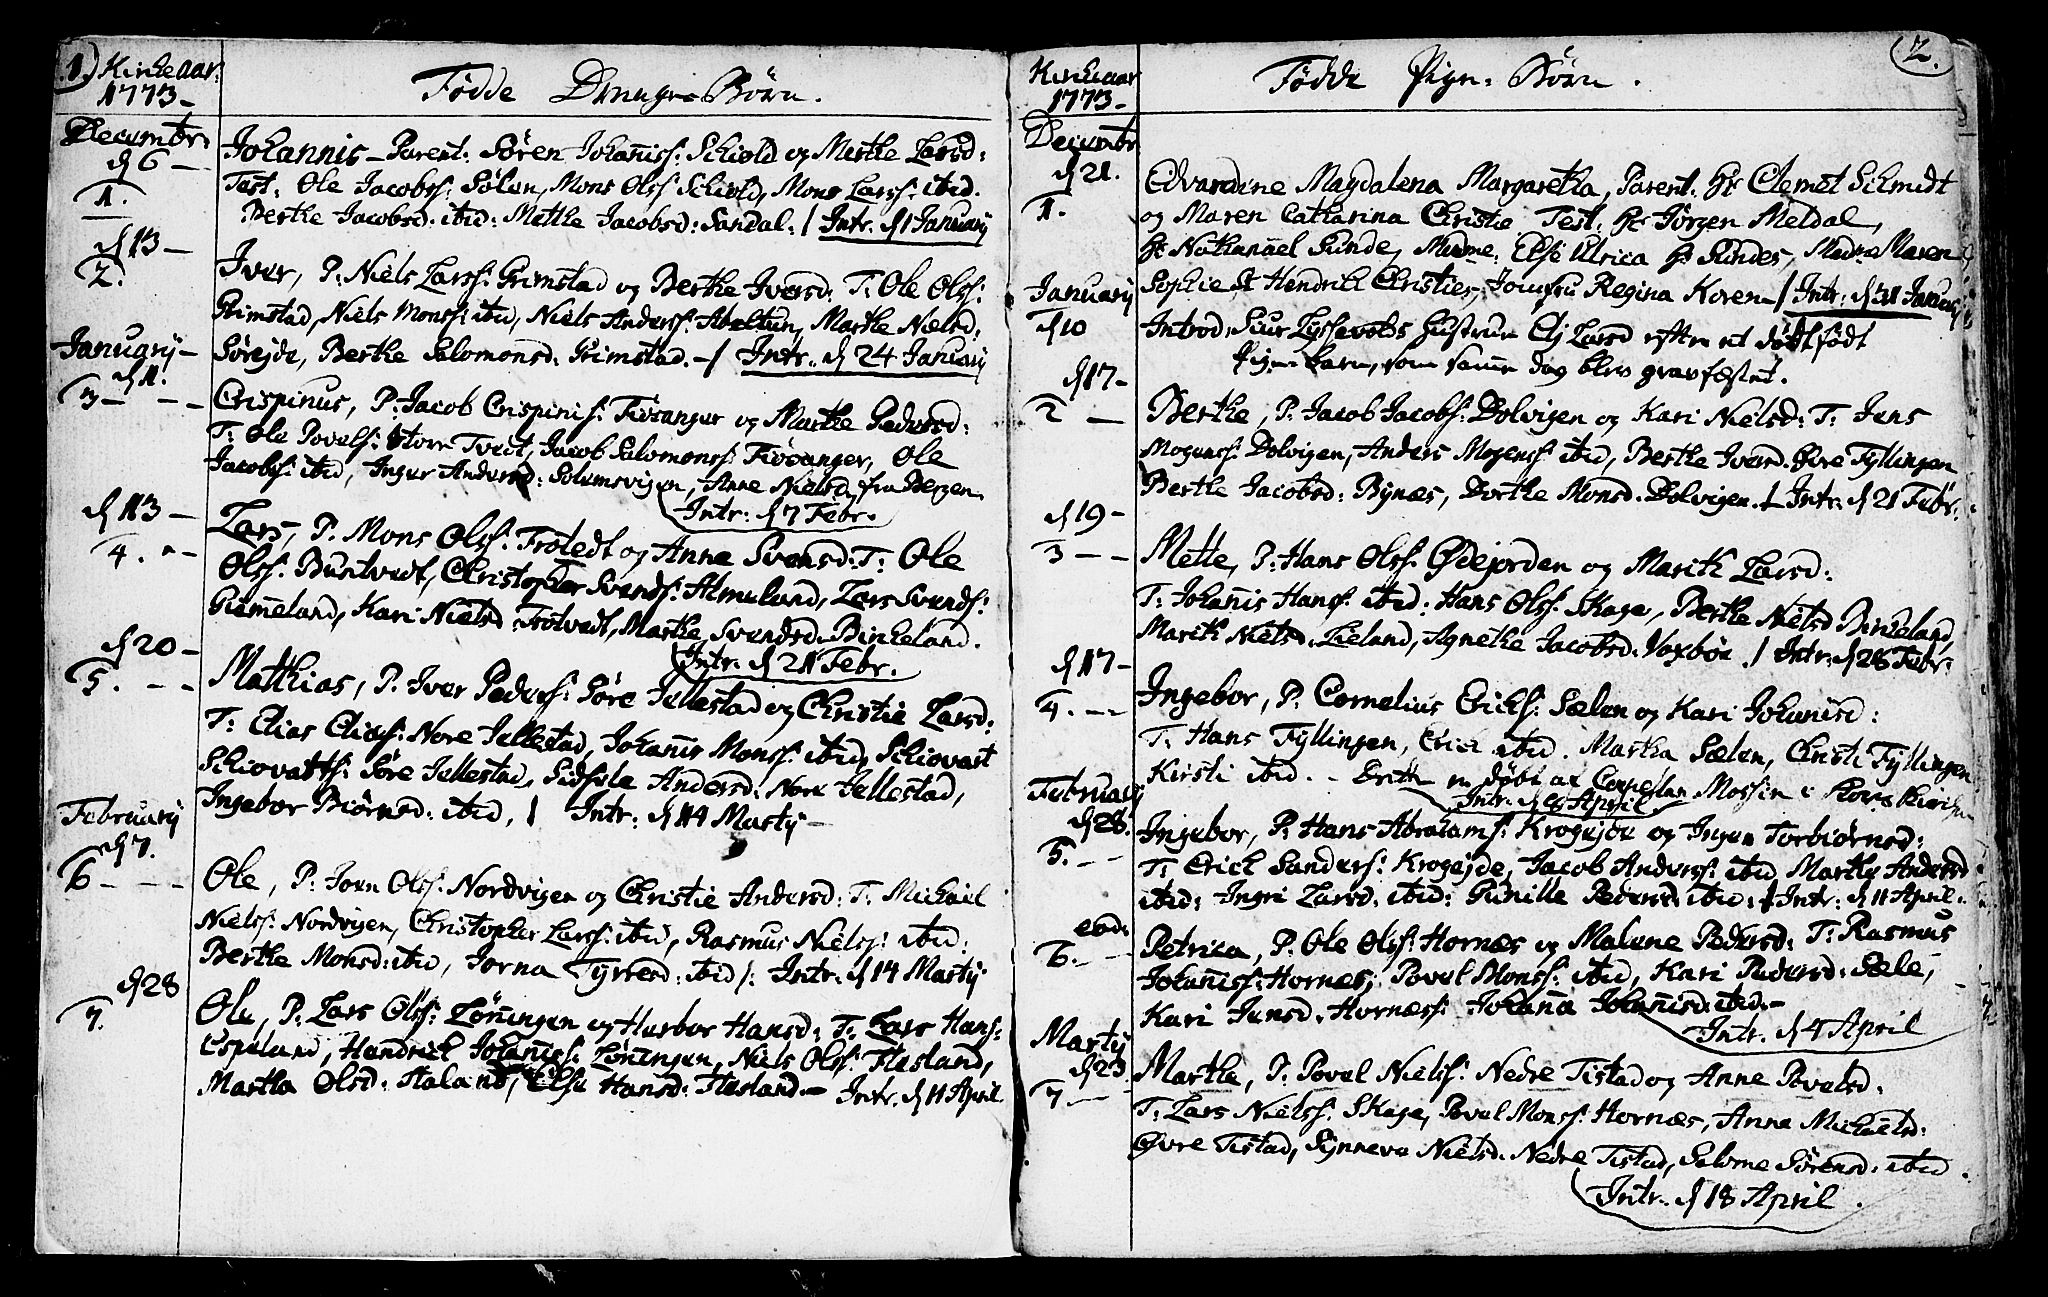 1.) Kirke aar
1773 –
Fødde Drenge Børn.
Decembr:
d 6 –
1.
Johannis – Parent: Søren Johañiss: Schiold og Merthe Larsd:
Test: Ole Jacobss: Sølen, Mons Olss: Schiold, Mons Larss: ibid.
Berthe Jacobsd: ibid: Metthe Jacobsd: Sandal. / Intr. d 1 January
d 13 –
2.
Iver, P: Niels Larss: Grimstad og Berthe Iversd: T: Ole Olss:
Grimstad, Niels Monss: ibid, Niels Anderss: Abeltun, Marthe Nielsd,
Sørejde, Berthe Salomonsd: Grimstad. – / Intr: d 24 January
January –
d 1.
3 – – –
Crispinus, P: Jacob Crispinis: Fiøsanger og Marthe Pedersd:
T: Ole Povelss: store Tvedt, Jacob Salomonss: Fiøsanger, Ole
Jacobss: ibid, Inger Andersd: Solemsvigen, Anne Nielsd fra Bergen
Intr: d 7 Febr.
d 13 –
4. – –
Lars, P. Mons Olss: Trøtedt og Anne Svensd: T: Ole
Olss: Buntvedt, Christopher Svends: Almeland, Lars Svends:
Giømeland, Kari Nielsd Trøtvedt, Marthe Svendsd. Birkeland.
Intr. d 21 Febr.
d 20 –
5. – –
Matthias, P. Iver Peders: Søre Jellestad og Christie Larsd:
T: Elias Eliass: Nore Jellestad, Johañis Monss: ibid, Schiovatt
Schiovatts: Søre Jellestad, Sidsele Andersd: Nore Jellestad,
Ingebor Biørnsd: ibid, / Intr: d 14 Martij –
February
d 7.
6 – – –
Ole, P: Joen Olss: Nordvigen og Christie Andersd: T: Michael
Nielss: Nordvigen, Christopher Larss: ibid, Rasmus Nielss: ibid:
Berthe Monsd: ibid, Jorna Tyrresd: ibid /: Intr: d 14 Martij
d 28
7.
Ole, P: Lars Olss: Løñingen og Herbor Hansd: T: Lars Hans:
Espeland, Hendrich Johañess: Løñingen, Niels Olss: Flesland,
Martha Olsd: Haland, Else Hansd: Flesland – Intr. d 11 April
2.
Kirke aar
1773 –
Fødde Pige- Børn.
Decembr
d 21.
1.
Edvardine Magdalena Margaretha, Parent: Hr Clemet Schmidt
og Maren Catharina Christie. Test: Hr Jørgen Meldal,
Hr Nathanael Sunde, Madme: Else Ulrica Hr Sundes, Madme Maren
Sophie Hendrich Christies, Jomfru Regina Koren – / Intr: d 31 January
January
d 10
Introd: Siur Lyssevolds Hustrue Eli Larsd efter et dødtfødt
Pige barn, som samme dag blev gravfæstet.
d 17 –
2 –
Berthe, P: Jacob Jacobs: Dolvigen og Kari Nielsd: T: Jens
Mogenss: Dolvigen, Anders Mogenss: ibid, Berthe Iversd Øvre Fyllingen
Berthe Jacobsd: Bynæs, Dorthe Monsd: Dolvigen. / Intr: d 21 Febr:
d 19 –
3 – –
Mette, P: Hans Olss: Ødejorden og Marith Larsd:
T: Johañis Hanss: ibid: Hans Olss: Skage, Berthe Nielsd Birkeland,
Marith Nielsd: Lieland, Agnethe Jacobsd: Voxbøe. / Intr: d 28 Febr:
d 17 –
4. – –
Ingebor, P. Cornelius Erichs: Sælen og Kari Johañisd:
T: Hans Fyllingen, Erich ibid. Martha Sælen, Christi Fyllingen
Kirsti ibid. – døbt af Capellan Mossin i Korskirken
Intr. d 9 April
February
d 28.
5. – –
Ingebor, P: Hans Abrahams: Krogejde og Ingen Torbiørnsd:
T: Erich Sanders: Krogejde, Jacob Anderss: ibid Marthe Andersd
ibid: Ingri Larsd: ibid: Gunille Pedersd: ibid: / Intr: d 11 April.
eod:
6. – –
Petrica, P: Ole Olss: Hornæs og Malene Pedersd: T: Rasmus
Johañiss: Hornæs, Povel Monss: ibid, Kari Pedersd: Sæle,
Kari Jensd. Hornæs: Johaña Johañisd: ibid. –
Intr. d 4 April
Martij
d 23
7 –
Marthe, P: Povel Nielss: Nedre Tistad og Anne Povelsd:
T: Lars Nielss: Skage, Povel Monss: Hornæs, Anne Michaelsd:
Øvre Tistad, Synneva Nielsd. Nedre Tistad, Salome Sørensd: ibid.
Intr. d 18 April.